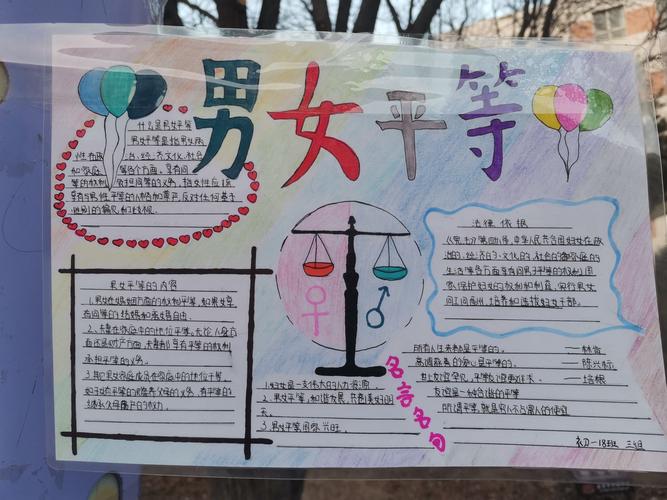 男女平等
什么是男女平等
男女平等是指男女两
性在政治、经济、文化、社会
和家庭等各个方面,享有同
等的权利,承担同等的义务,指女性应该
享有与男性平等的人格和尊严,反对任何基于
性别的偏见和歧视。
法律依据
《宪法》第四十八条,中华人民共和国妇女在政
治的、经济的、文化的、社会的和家庭的
生活等各方面享有同男子平等的权利。国
家保护妇女的权利和利益,实行男女
同工同酬,培养和选拔妇女干部。
男女平等的内容
1.男女在婚姻方面的权利平等,如男女享
有同等的结婚和离婚自由。
2、夫妻在家庭中的地位平等,无论人身方
面还是财产方面,夫妻都享有平等的权利
承担平等的义务。
3.其它男女家庭成员在家庭中的地位平等,
如子女在平等的赡养父母的义务,有平等的
继承父母遗产的权力。
1.妇女是一支伟大的人力资源
2.男女平等,和谐发展,共创美好明
天。
3.男女平等国家兴旺。
名言名句
所有人生来都是平等的。——林肯
——陈兴标
——培根
友谊是一种和谐的平等
所谓平等,就是穷人不占富人的便宜
初一18班